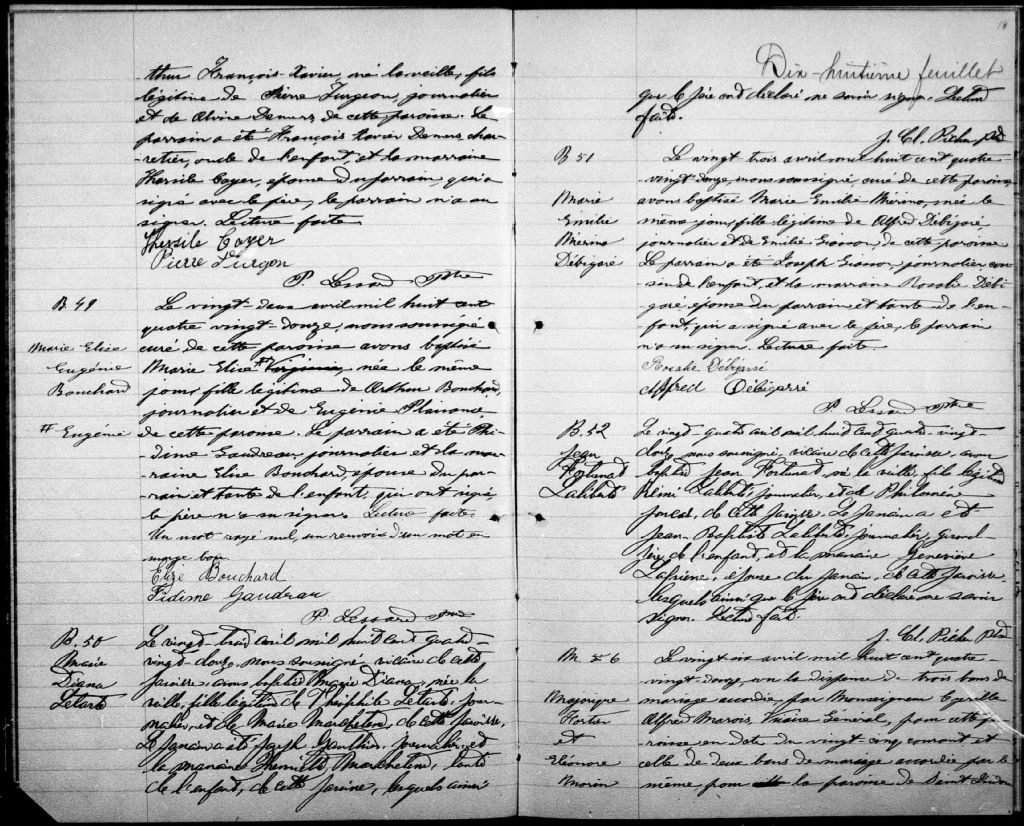 thur François-Xavier, né la veille, fils
légitime de Pierre Turgeon, journalier
et de Alvine Demers de cette paroisse. Le
parrain a été François Xavier Demers, char-
retier, oncle de l'enfant, et la marraine
Thersile Cayer, épouse du parrain, qui a
signé avec le père, le parrain n'a su
signer. Lecture faite
Thersile Cayer
Pierre Turgon
P. Lessard Ptre
B. 49
Marie Elise
Eugénie
Bouchard
# Eugénie
Le vingt-deux avril mil huit cent
quatre vingt-douze, nous soussigné
curé de cette paroisse avons baptisé
Marie Elise # Virginie, née le même
jour, fille légitime de Arthur Bouchard,
journalier et de Eugénie Plaisance
de cette paroisse. Le parrain a été Phi-
dime Gaudreau, journalier et la mar-
raine Elise Bouchard, épouse du par-
rain et tante de l'enfant, qui ont signé,
le père n'a su signer. Lecture faite.
Un mot rayé nul, un renvoi d'un mot en
marge bon.
Elize Bouchard
Fidime Gaudrau
P. Lessard Ptre
B. 50
Marie
Diana
Letarte
Le vingt-trois avril mil huit cent quatre-
vingt-douze, nous soussigné, vicaire de cette
paroisse, avons baptisé Marie Diana, née la
veille, fille légitime de Théophile Letarte, jour-
nalier, et de Marie Marcheterre, de cette paroisse.
Le parrain a été Joseph Gauthier, journalier, et
la marraine Marcheterre, tante
de l'enfant, de cette paroisse, lesquels ainsi
Dix-huitième feuillet
que le père ont déclaré ne savoir signer. Lecture
faite.
J. Cl. Picher Ptre
B 51
Marie
Emilie
Mérina
Débigaré
Le vingt trois avril mil huit cent quatre-
vingt-douze, nous soussigné, curé de cette paroisse
avons baptisé Marie Emilie Mérina, née le
même jour, fille légitime de Alfred Débigaré,
journalier et de Emilie de cette paroisse
Le parrain a été Joseph journalier, cou-
sin de l'enfant, et la marraine Rosalie Débi-
garé, épouse du parrain et tante de l'en-
fant, qui a signé avec le père, le parrain
n'a su signer. Lecture faite.
Rosalie Débigarré
Alfred Débigarré
P. Lessard Ptre
B. 52
Jean
Fortunat
Laliberté
Le vingt-quatre avril mil huit cent quatre-vingt-
douze, nous soussigné, vicaire de cette paroisse, avons
baptisé Jean Fortunat, né la veille, fils légitime
Rémi Laliberté, journalier, et de Philomène
de cette paroisse. Le parrain a été
Jean-Baptiste Laliberté, journalier, grand-
père de l'enfant, et la marraine Geneviève
épouse du parrain, de cette paroisse
lesquels ainsi que le père ont déclaré ne savoir
signer. Lecture faite.
J. Cl. Picher Ptre
M. 6
Majorique
Fortier
et
Eléonore
Morin
Le vingt-six avril mil huit cent quatre-
vingt-douze, vu la dispense de trois bans de
mariage accordée, par Monseigneur
Alfred Marois, Vicaire Général, pour cette pa-
roisse en date du vingt-cinq courant et
celle de deux bans de mariage accordée par le
même pour la paroisse de Saint